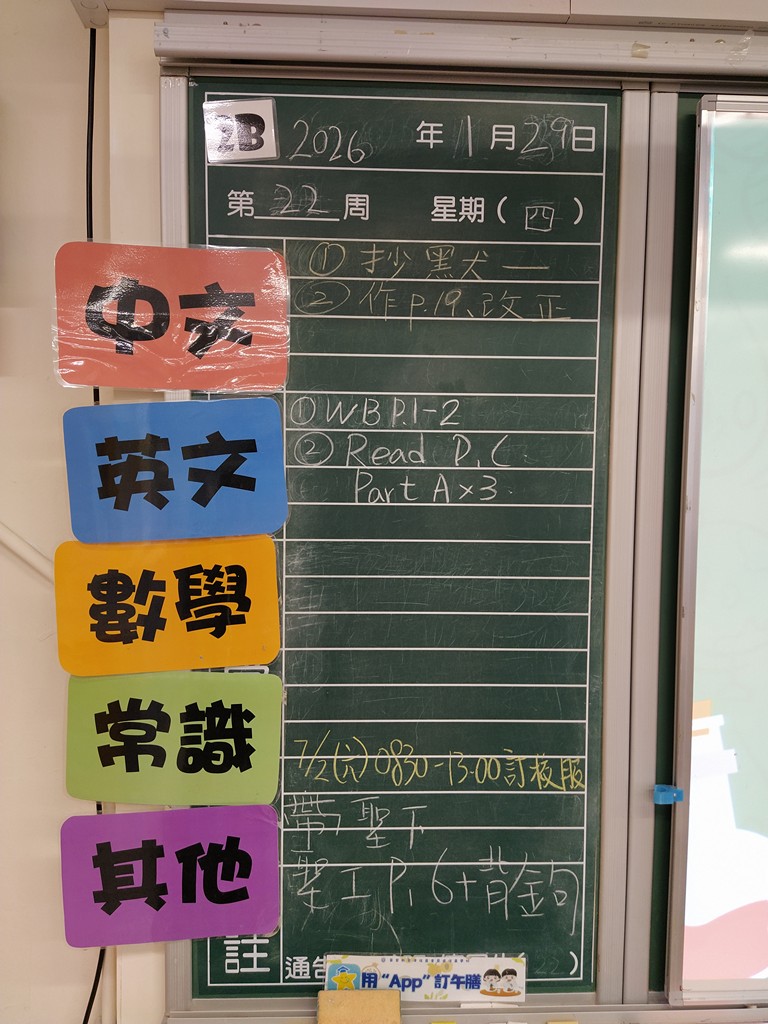 2B 2026 年 1 月 29 日
第 22 周 星期 ( 四 )
中文
① 抄黑犬一
② 作 p.19、改正
英文
① WB P.1-2
② Read P.
Part A×3.
數學
常識
7/2 (六) 0830-13:00 訂校服
其他
帶 聖下
聖工 P.6+背金句
註
通告 )
用 "App" 訂午膳